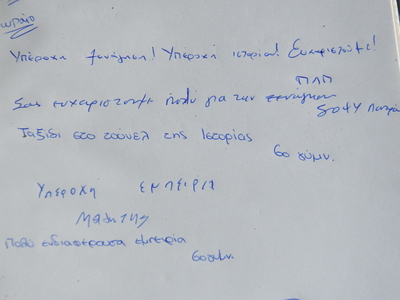 ωραίο
Υπέροχη ξενάγηση! Υπέροχη ιστορία! Ευχαριστούμε!
ΠΛΠ
Σας ευχαριστουμε πολύ για την ξενάγηση
Ταξίδι στο τούνελ της Ιστορίας
6ο γυμν.
Υπέροχη ΕΜΠΕΙΡΙΑ
Μαθητης
Πολύ ενδιαφέρουσα εμπειρία
6ο γυμν.